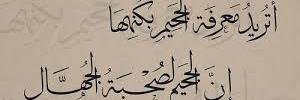 أتريدُ مَعرِفَةَ الجحيمِ بكنهِهَا
إنَّ الجحيمَ لصُحبَةُ الجُهَّالِ